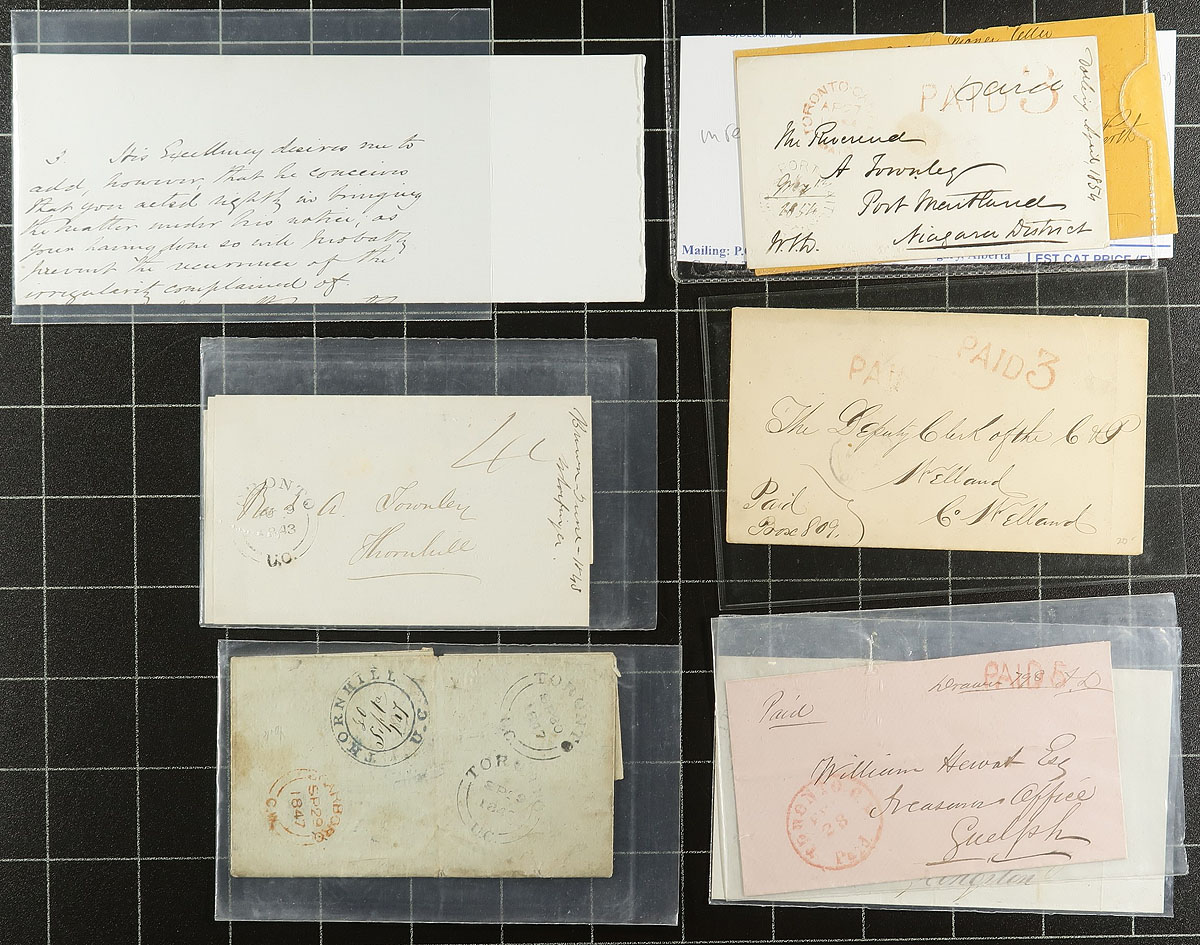 3 His Excellency desires me to
add, however, that he conceives
that you acted rightly in bringing
the matter under his notice, as
your having done so will probably
prevent the recurrence of the
irregularity complained of
Money Letter
TORONTO
PAID 3
Paid
The Reverend
A Townley
Port Maitland
Niagara District
1854
Mailing: P.
Alberta
EST CAT PRICE
PAID
PAID 3
The Deputy Clerk of the C & P
Welland
Co Welland
Paid
Box 809.
TORONTO
U.C.
Rev A. Townley
Thornhill
THORNHILL U.C.
TORONTO
1847
TORONTO
SP 29
U.C.
SCARBORO
SP 29
1847
C.W.
PAID 5
Drawer 798
Paid
William Hewat Esq
Treasurers Office
Guelph
28
Paid
Kingston